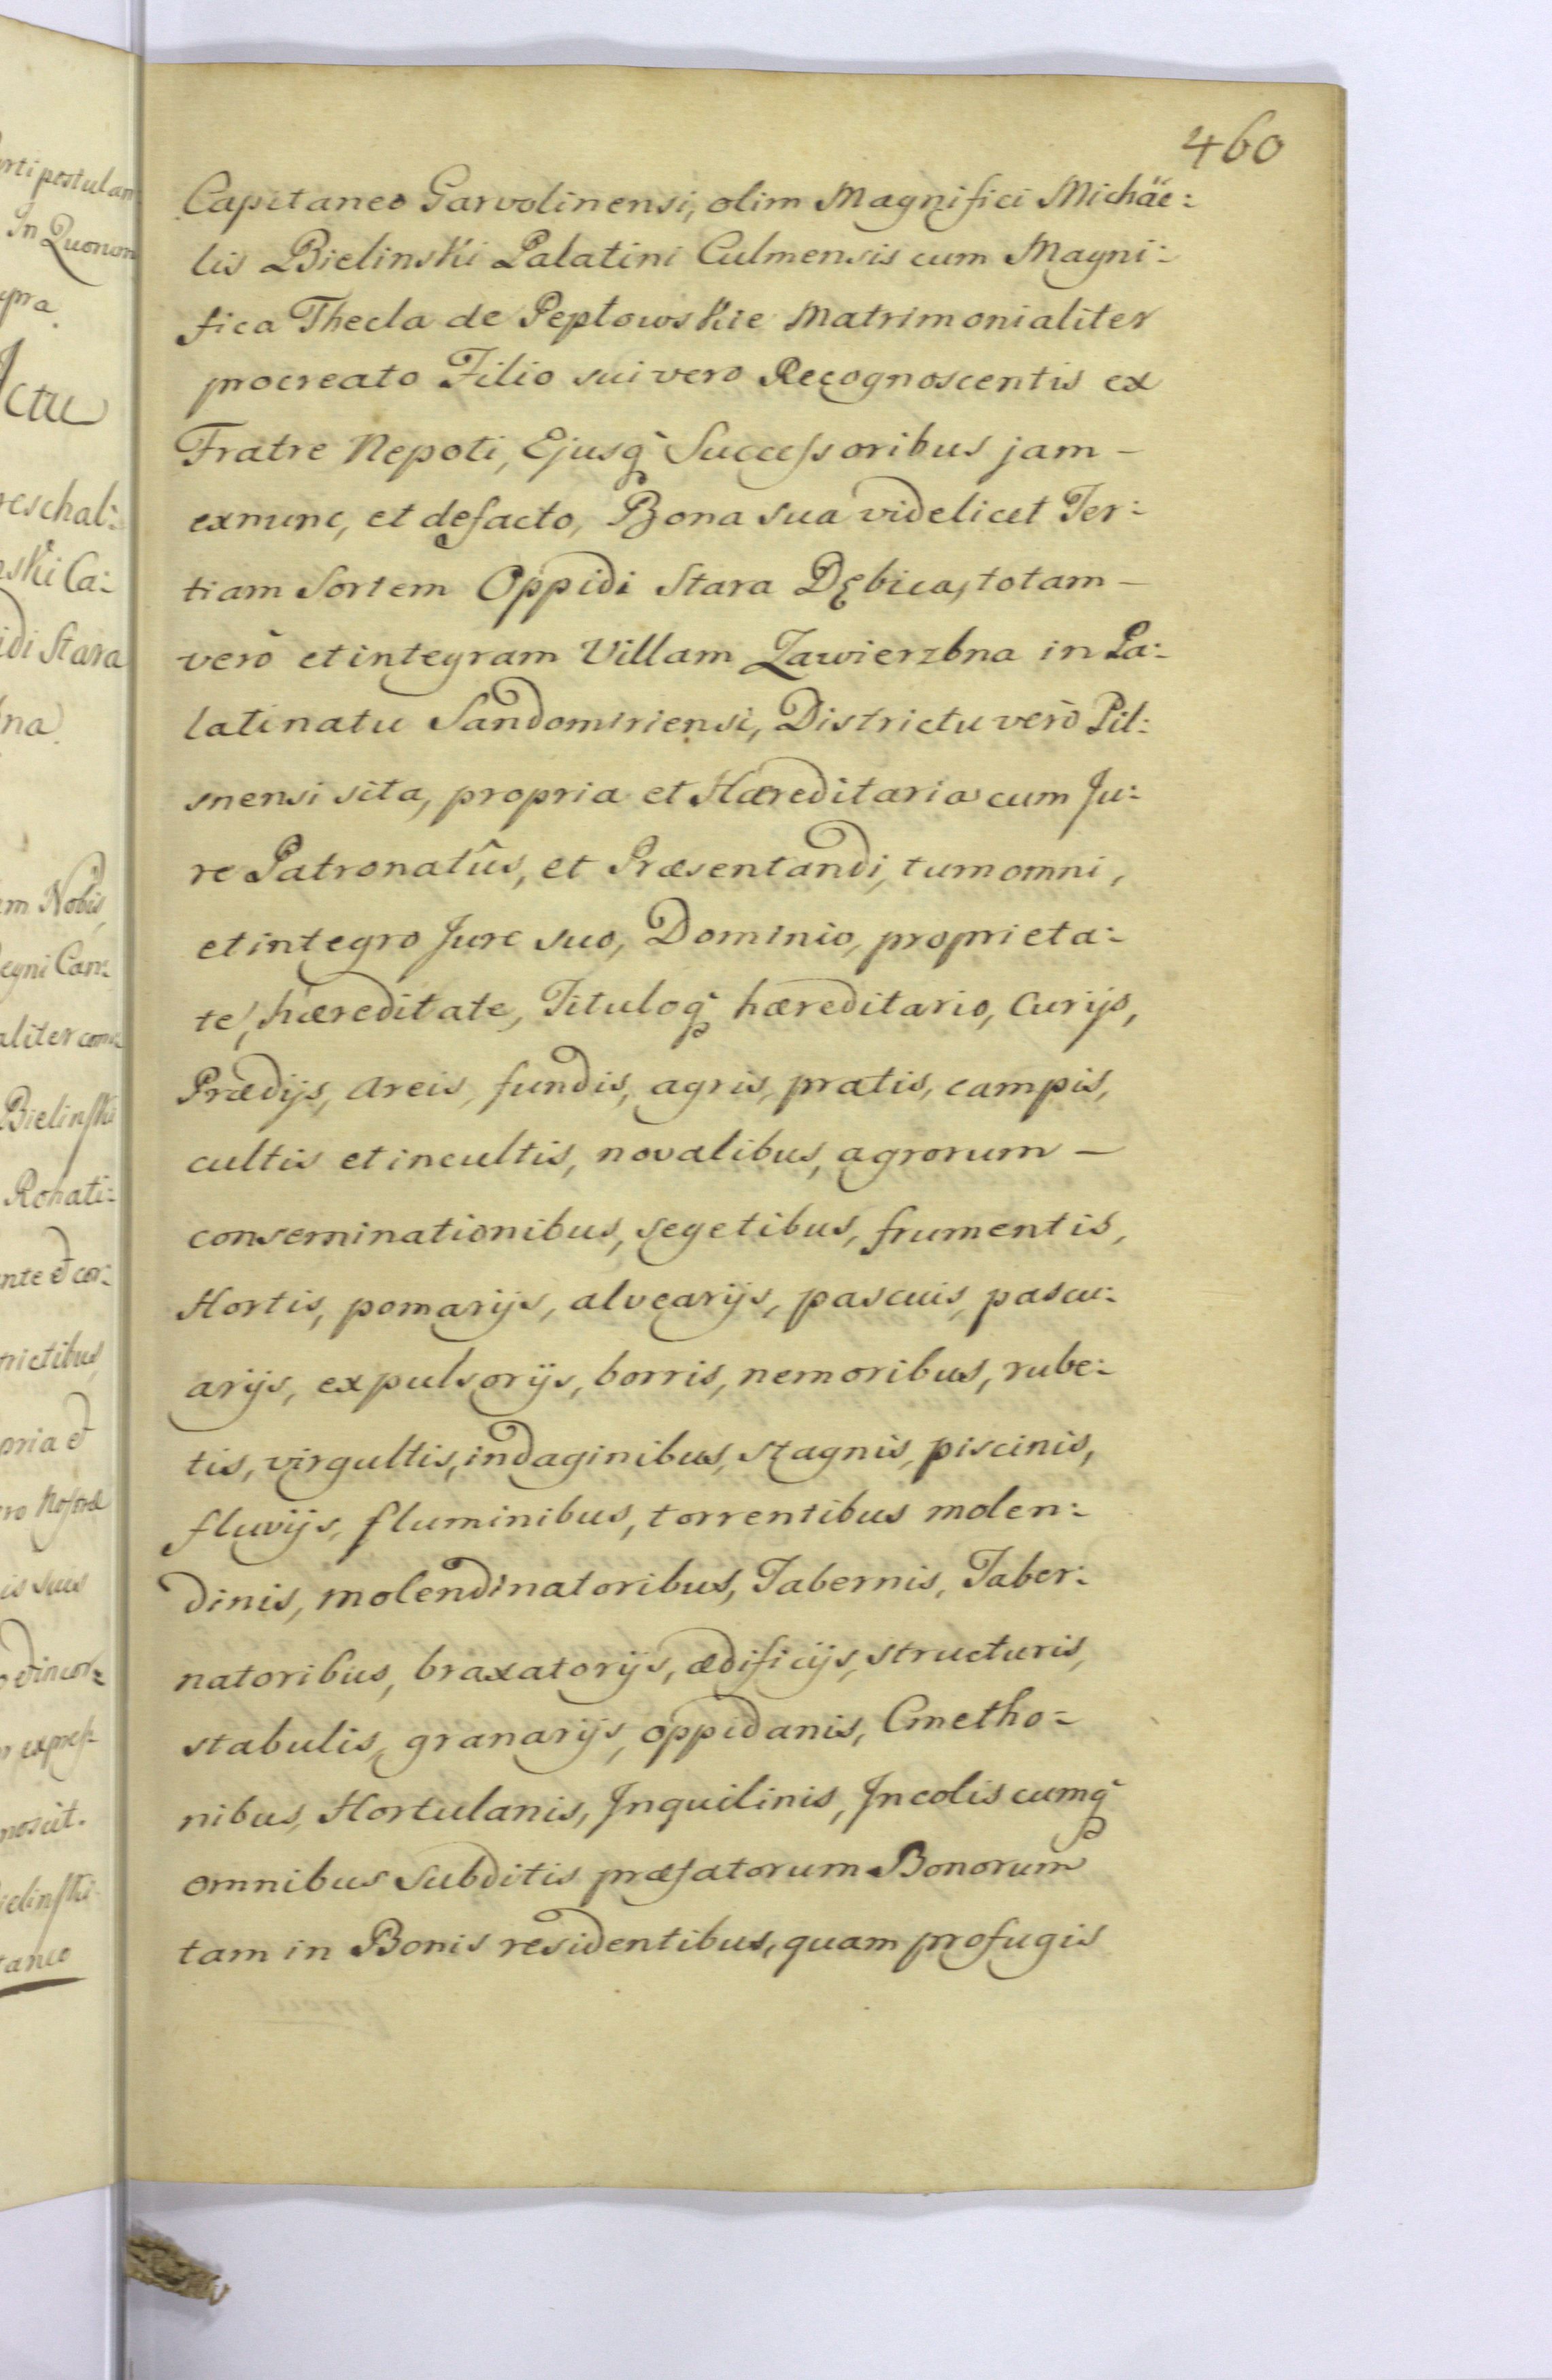 460
Capitaneo Garvolinensi, olim Magnifici Michäe:
lis Bielinski Palatini Culmensis cum Magni:
fica Thecla de Peptowskie Matrimonialiter
procreato Filio sui vero Recognoscentis ex
Fratre Nepoti, Ejusq̀ Successoribus jam -
exnunc, et defacto, Bona sua videlicet Ter:
tiam Sortem Oppidi Stara Dębica, totam -
verò et integram Villam Zawierzbna in Pa:
latinatu Sandomiriensi, Districtu verò Pil:
snensi sita, propria et Hæreditaria cum Ju:
re Patronatûs, et Præsentandi, tum omni,
et integro Jure suo, Dominio, proprieta:
te, hæreditate, Tituloq̀ hæreditario, Curijs,
Prædijs, areis, fundis, agris, pratis, campis,
cultis et incultis, novalibus, agrorum -
conseminationibus, segetibus, frumentis,
Hortis, pomarijs, alvearijs, pascuis, pascu:
arijs, expulsorijs, borris, nemoribus, rube:
tis, virgultis, indaginibus, stagnis, piscinis,
fluvijs, fluminibus, torrentibus molen:
dinis, molendinatoribus, Tabernis, Taber:
natoribus, braxatorijs, ædificijs, structuris,
stabulis, granarijs, oppidanis, Cmetho=
nibus, Hortulanis, Inquilinis, Incolis cumq̀
omnibus Subditis præfatorum Bonorum
tam in Bonis residentibus, quam profugis